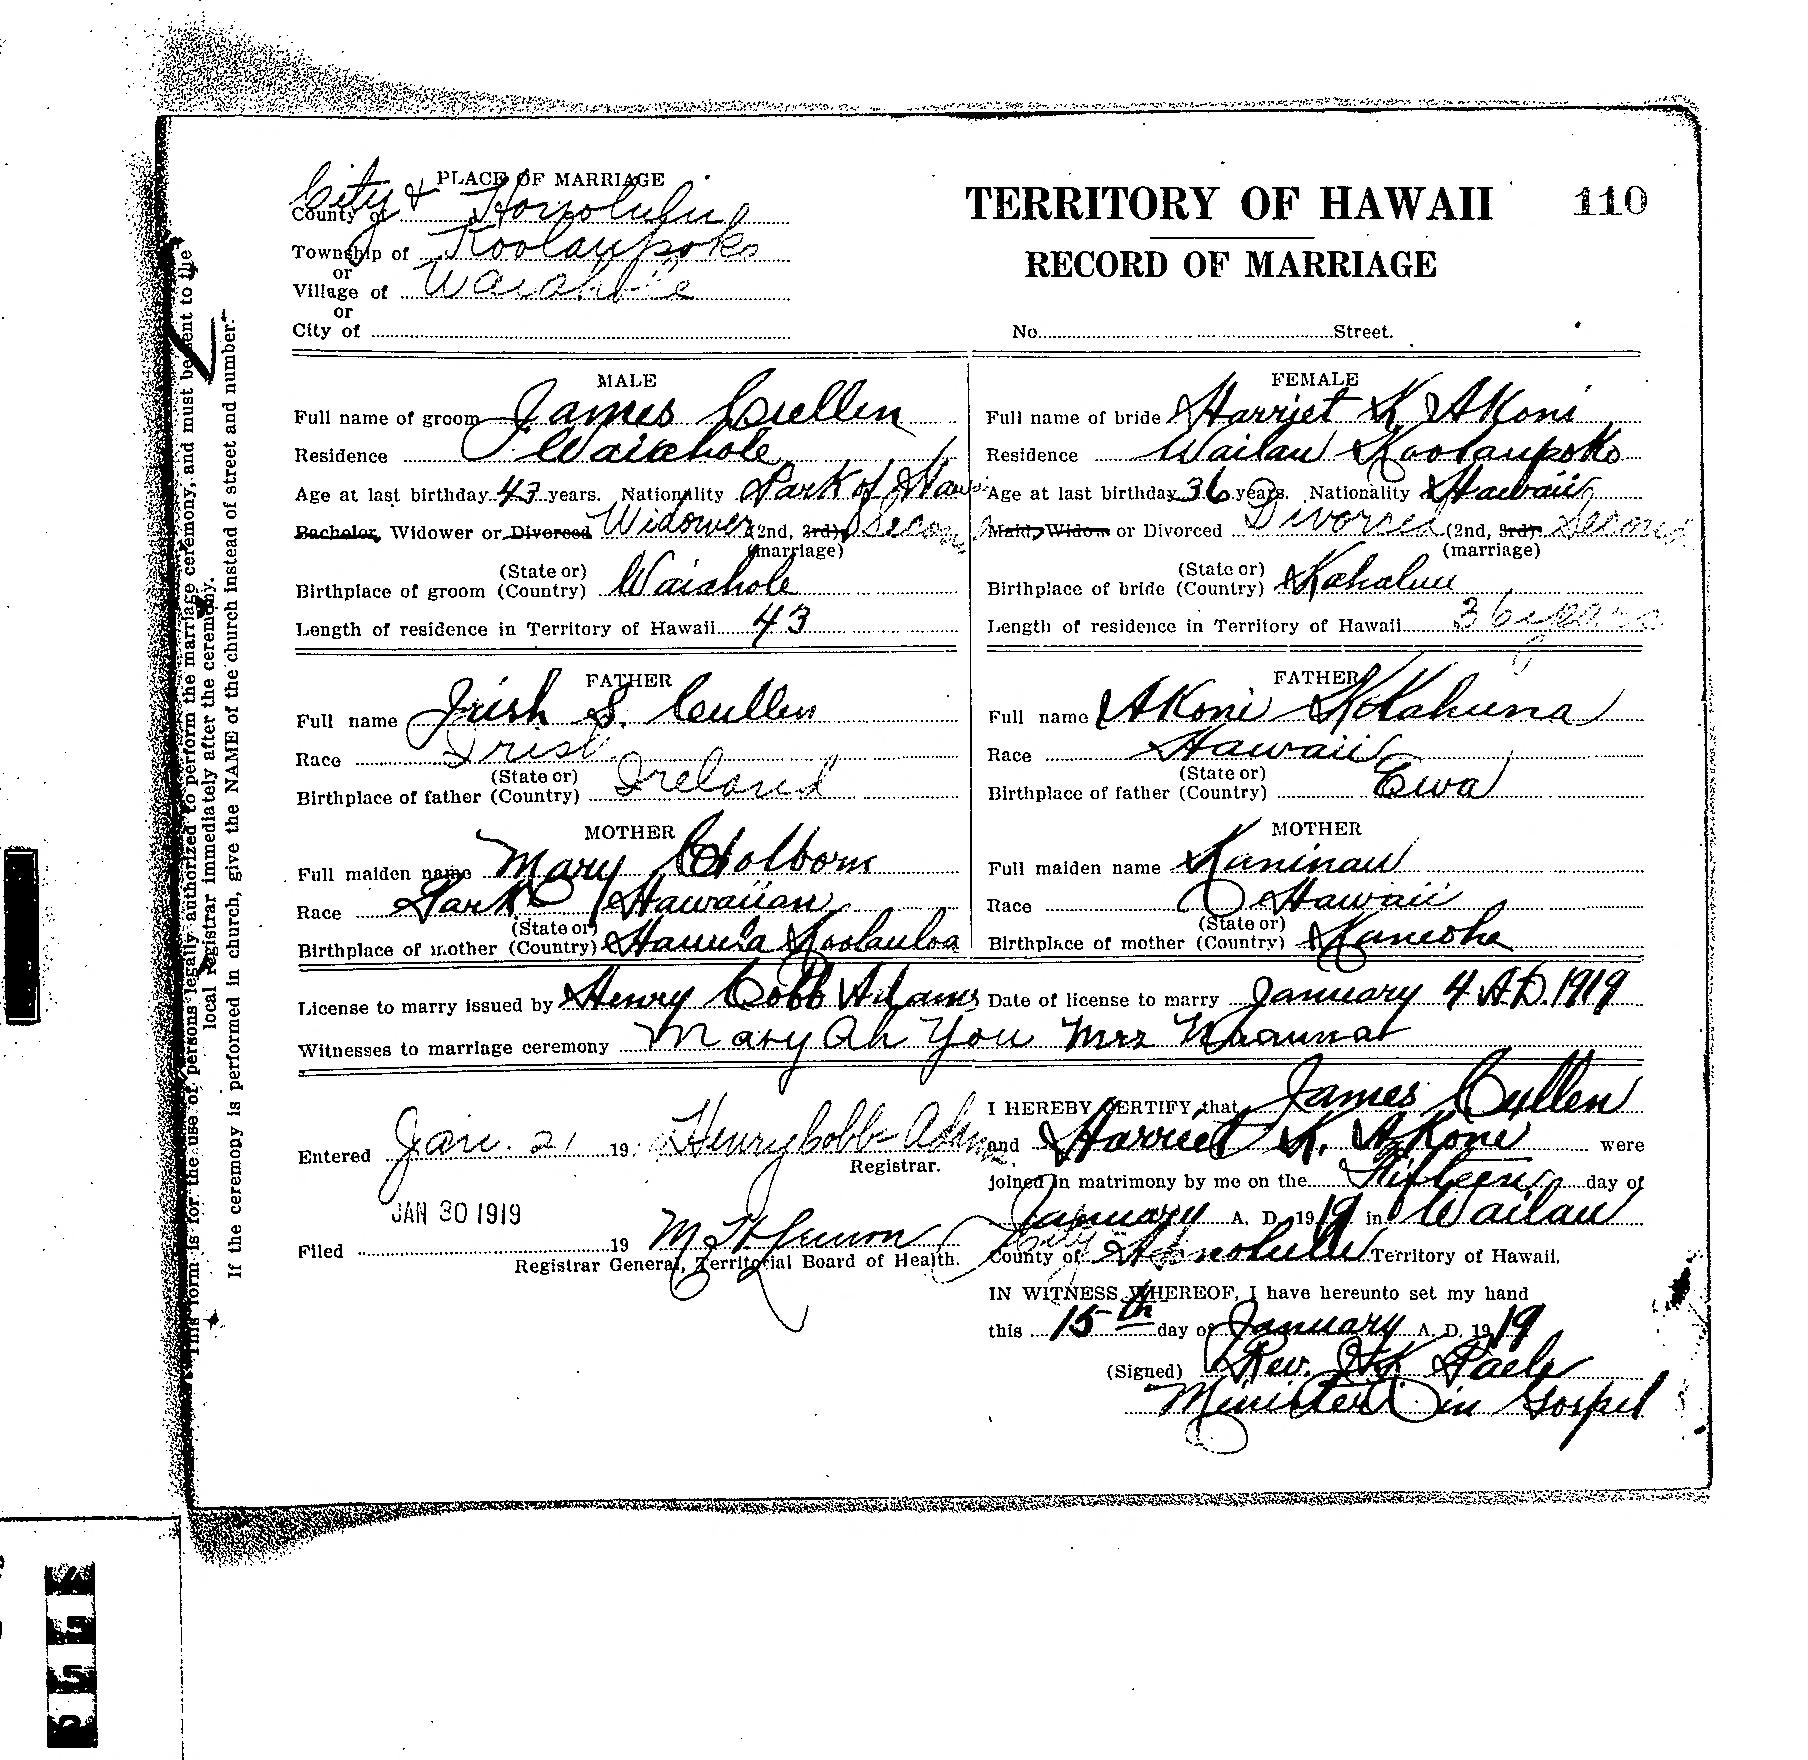 PLACE OF MARRIAGE
City &
County of Honolulu
Township of Koolaupoko
or
Village of Waiahole
or
City of
TERRITORY OF HAWAII 110
RECORD OF MARRIAGE
No. Street.
MALE
Full name of groom James Cullen
Residence Waiahole
Age at last birthday 43 years. Nationality Park of Haw
Bachelor, Widower or Divorced Widower (2nd, 3rd) Second
(marriage)
(State or)
Birthplace of groom (Country) Waiahole
Length of residence in Territory of Hawaii 43
FATHER
Full name Irish S. Cullen
Race Irish
(State or)
Birthplace of father (Country) Ireland
MOTHER
Full maiden name Mary Holborn
Race Park Hawaiian
(State or)
Birthplace of mother (Country) Hauula Koolauloa
FEMALE
Full name of bride Harriet K Akoni
Residence Wailau Koolaupoko
Age at last birthday 36 years. Nationality Hawaii
Maid, Widow or Divorced Divorced (2nd, 3rd) Second
(marriage)
(State or)
Birthplace of bride (Country) Kahaluu
Length of residence in Territory of Hawaii 36 years
FATHER
Full name Akoni Kekahuna
Race Hawaii
(State or)
Birthplace of father (Country) Ewa
MOTHER
Full maiden name Kaninau
Race Hawaii
(State or)
Birthplace of mother (Country) Kaneohe
License to marry issued by Henry Cobb Adams Date of license to marry January 4 A.D. 1919
Witnesses to marriage ceremony Mary Ah You Mrs
Entered Jan. 21 19 Henry Cobb Adams
Registrar.
JAN 30 1919
Filed 19
Registrar General, Territorial Board of Health.
I HEREBY CERTIFY that James Cullen
and Harriet K. Akoni were
joined in matrimony by me on the Fifteen day of
January A. D. 1919 in Wailau
City
County of Honolulu Territory of Hawaii.
IN WITNESS WHEREOF, I have hereunto set my hand
this 15th day of January A. D. 1919
(Signed) Rev. J K Paele
Minister in Gospel
This form is for the use of persons legally authorized to perform the marriage ceremony, and must be sent to the
local registrar immediately after the ceremony.
If the ceremony is performed in church, give the NAME of the church instead of street and number.